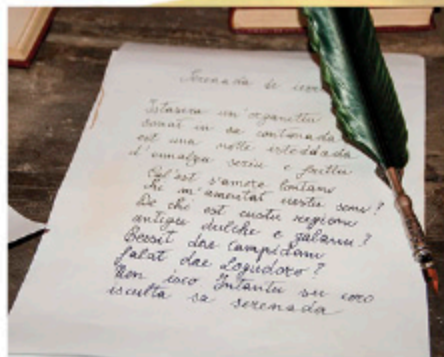 Serenada de ierru
Istasera un'organittu
sonat in sa contonada
est una notte isteddada
d'ennalzu seriu e frittu
Cal'est s'amore lontanu
chi m'ammentat custu sonu?
De chi est custu regionu
antigu dulche e galanu?
Bessit dae Campidanu
falat dae Logudoro?
Non isco Intantu su coro
isculta sa serenada